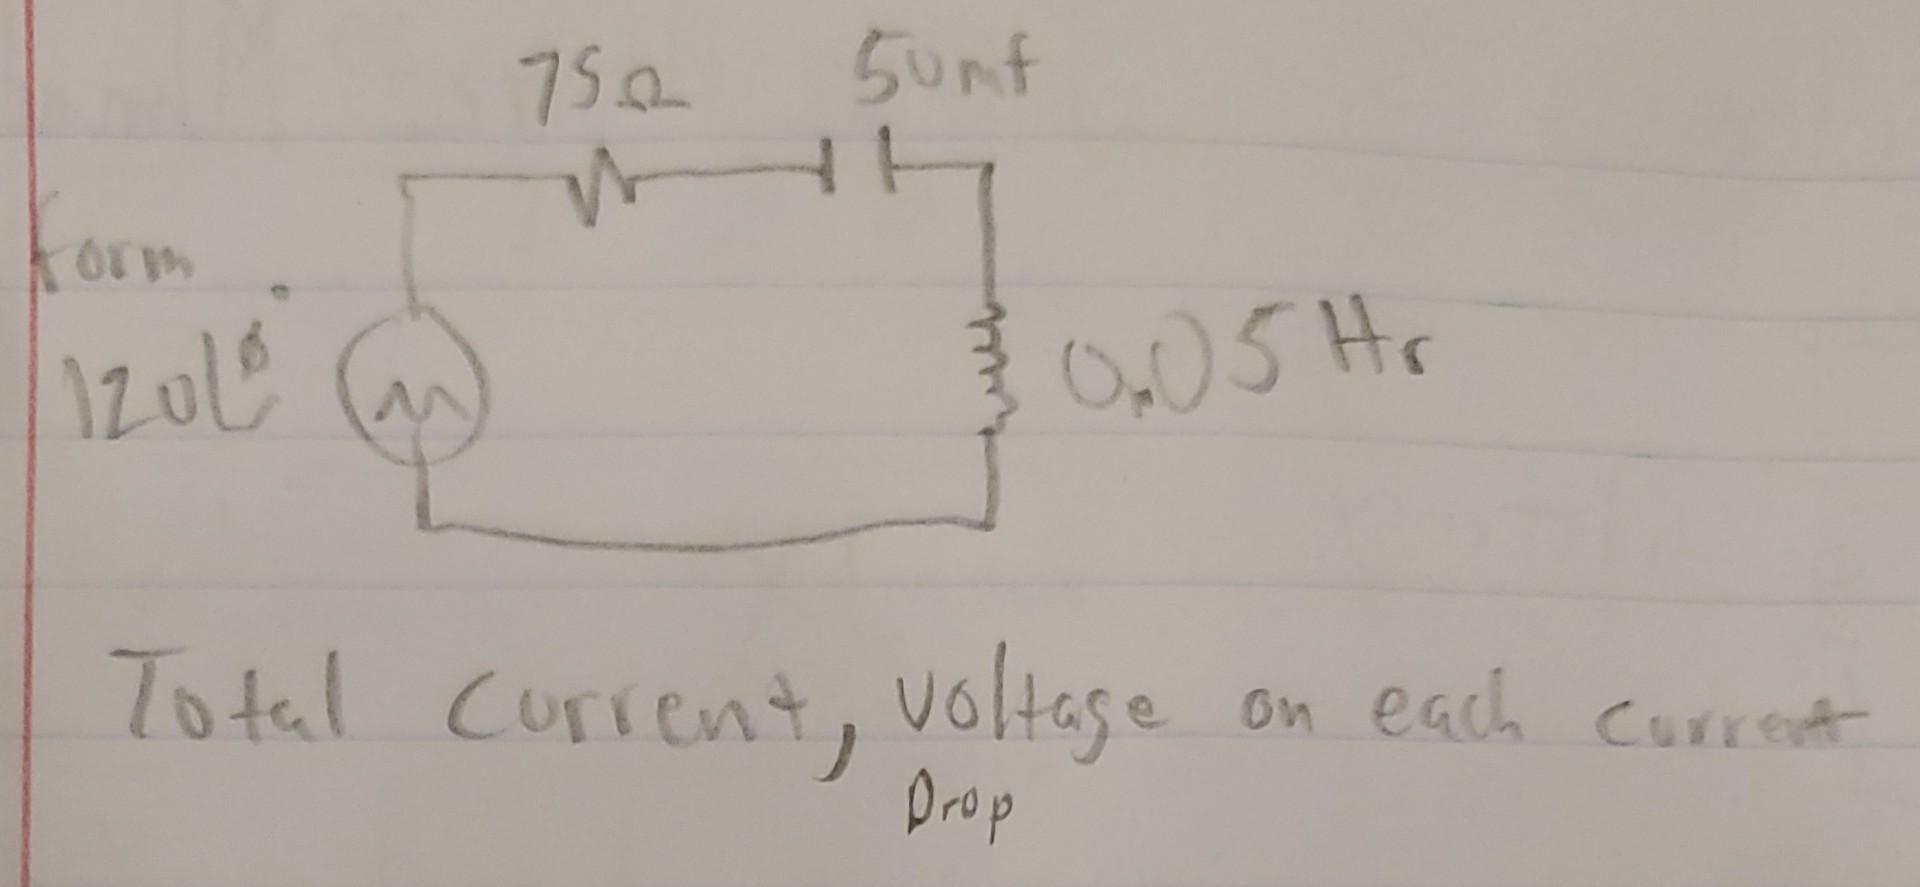 75Ω 50mf
form
120∠0°
0.05 Hr
Total Current, Voltage on each current
Drop